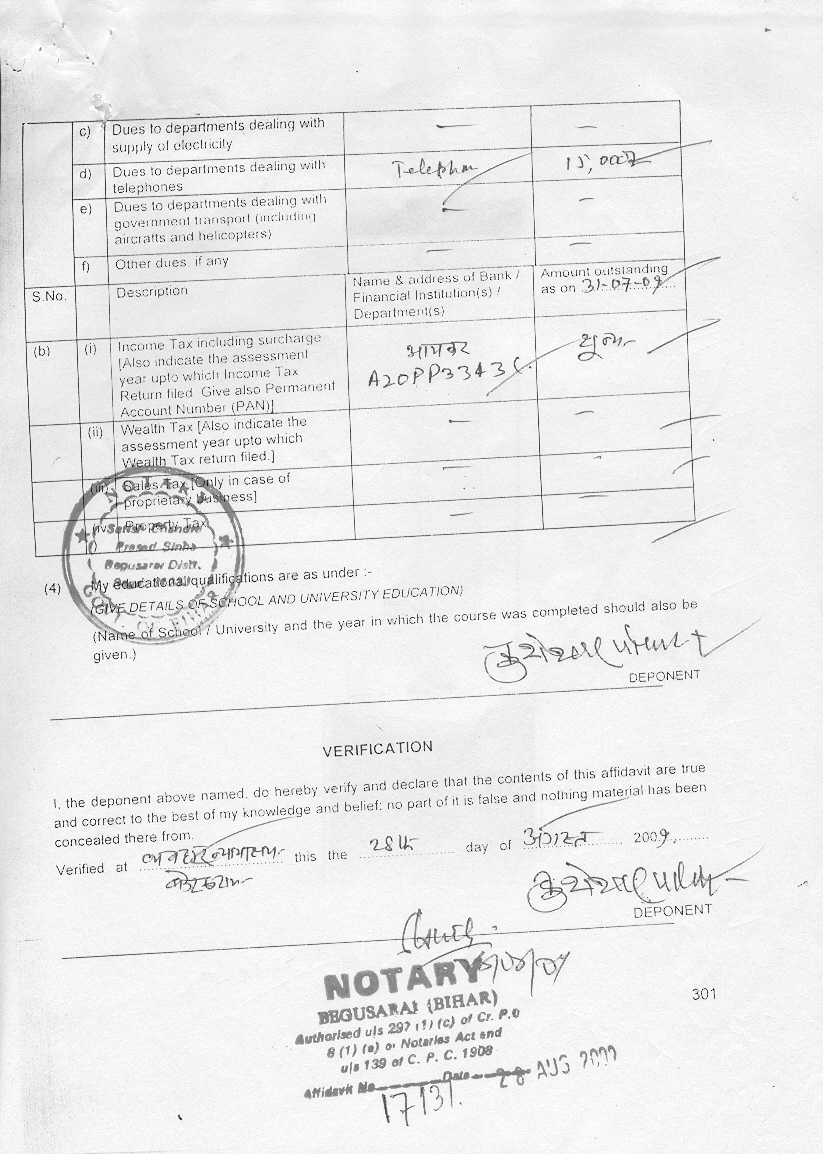 c) Dues to departments dealing with — —
supply of electricity
d) Dues to departments dealing with Telephon 15,000/-
telephones
e) Dues to departments dealing with — —
government transport (including
aircrafts and helicopters)
f) Other dues if any — —
S.No. Description Name & address of Bank / Amount outstanding
Financial Institution(s) / as on 31-07-09
Department(s)
(b) (i) Income Tax including surcharge आयकर शून्य
[Also indicate the assessment
year upto which Income Tax
Return filed. Give also Permanent
Account Number (PAN)]
(ii) Wealth Tax [Also indicate the — —
assessment year upto which
Wealth Tax return filed.]
(iii) Sales Tax [Only in case of — —
proprietary business]
(iv) Property Tax — —
NOTARY
Prasad Sinha
Begusarai Distt.
GOVT. OF BIHAR
(4) My educational qualifications are as under :-
(GIVE DETAILS OF SCHOOL AND UNIVERSITY EDUCATION)
(Name of School / University and the year in which the course was completed should also be
given.)
DEPONENT
VERIFICATION
I, the deponent above named, do hereby verify and declare that the contents of this affidavit are true
and correct to the best of my knowledge and belief; no part of it is false and nothing material has been
concealed there from.
Verified at व्यवहार न्यायालय this the 28th day of अगस्त, 2009,
DEPONENT
NOTARY
BEGUSARAI (BIHAR)
301
Authorised u/s 297 (1) (c) of Cr. P.C
8 (1) (e) of Notaries Act and
u/s 139 of C. P. C. 1908
Affidavit No Date 28 AUG 2009
17131.